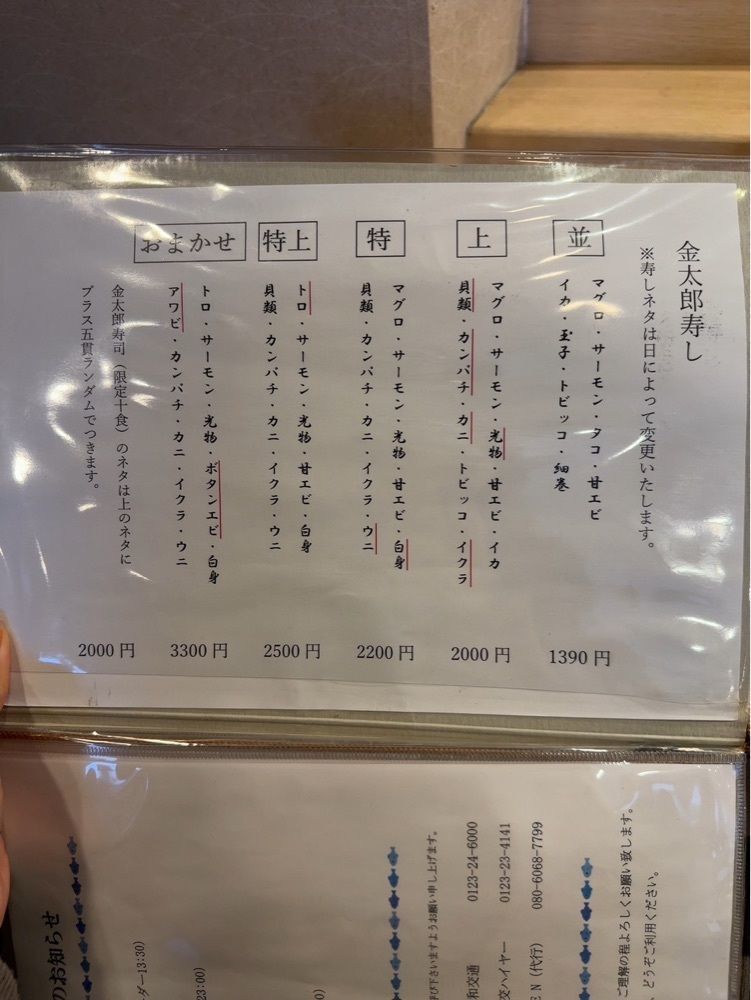 金太郎寿し
※寿しネタは日によって変更いたします。
並
マグロ・サーモン・タコ・甘エビ
イカ・玉子・トビッコ・細巻
1390 円
上
マグロ・サーモン・光物・甘エビ・イカ
貝類・カンパチ・カニ・トビッコ・イクラ
2000 円
特
マグロ・サーモン・光物・甘エビ・白身
貝類・カンパチ・カニ・イクラ・ウニ
2200 円
特上
トロ・サーモン・光物・甘エビ・白身
貝類・カンパチ・カニ・イクラ・ウニ
2500 円
おまかせ
トロ・サーモン・光物・ボタンエビ・白身
アワビ・カンパチ・カニ・イクラ・ウニ
3300 円
金太郎寿司（限定十食）のネタは上のネタに
プラス五貫ランダムでつきます。
2000 円
のお知らせ
ダー13:30)
23:00)
呼び下さいますようお願い申し上げます。
和交通 0123-24-6000
交ハイヤー 0123-23-4141
EN（代行） 080-6068-7799
ご理解の程よろしくお願い致します。
どうぞご利用ください。